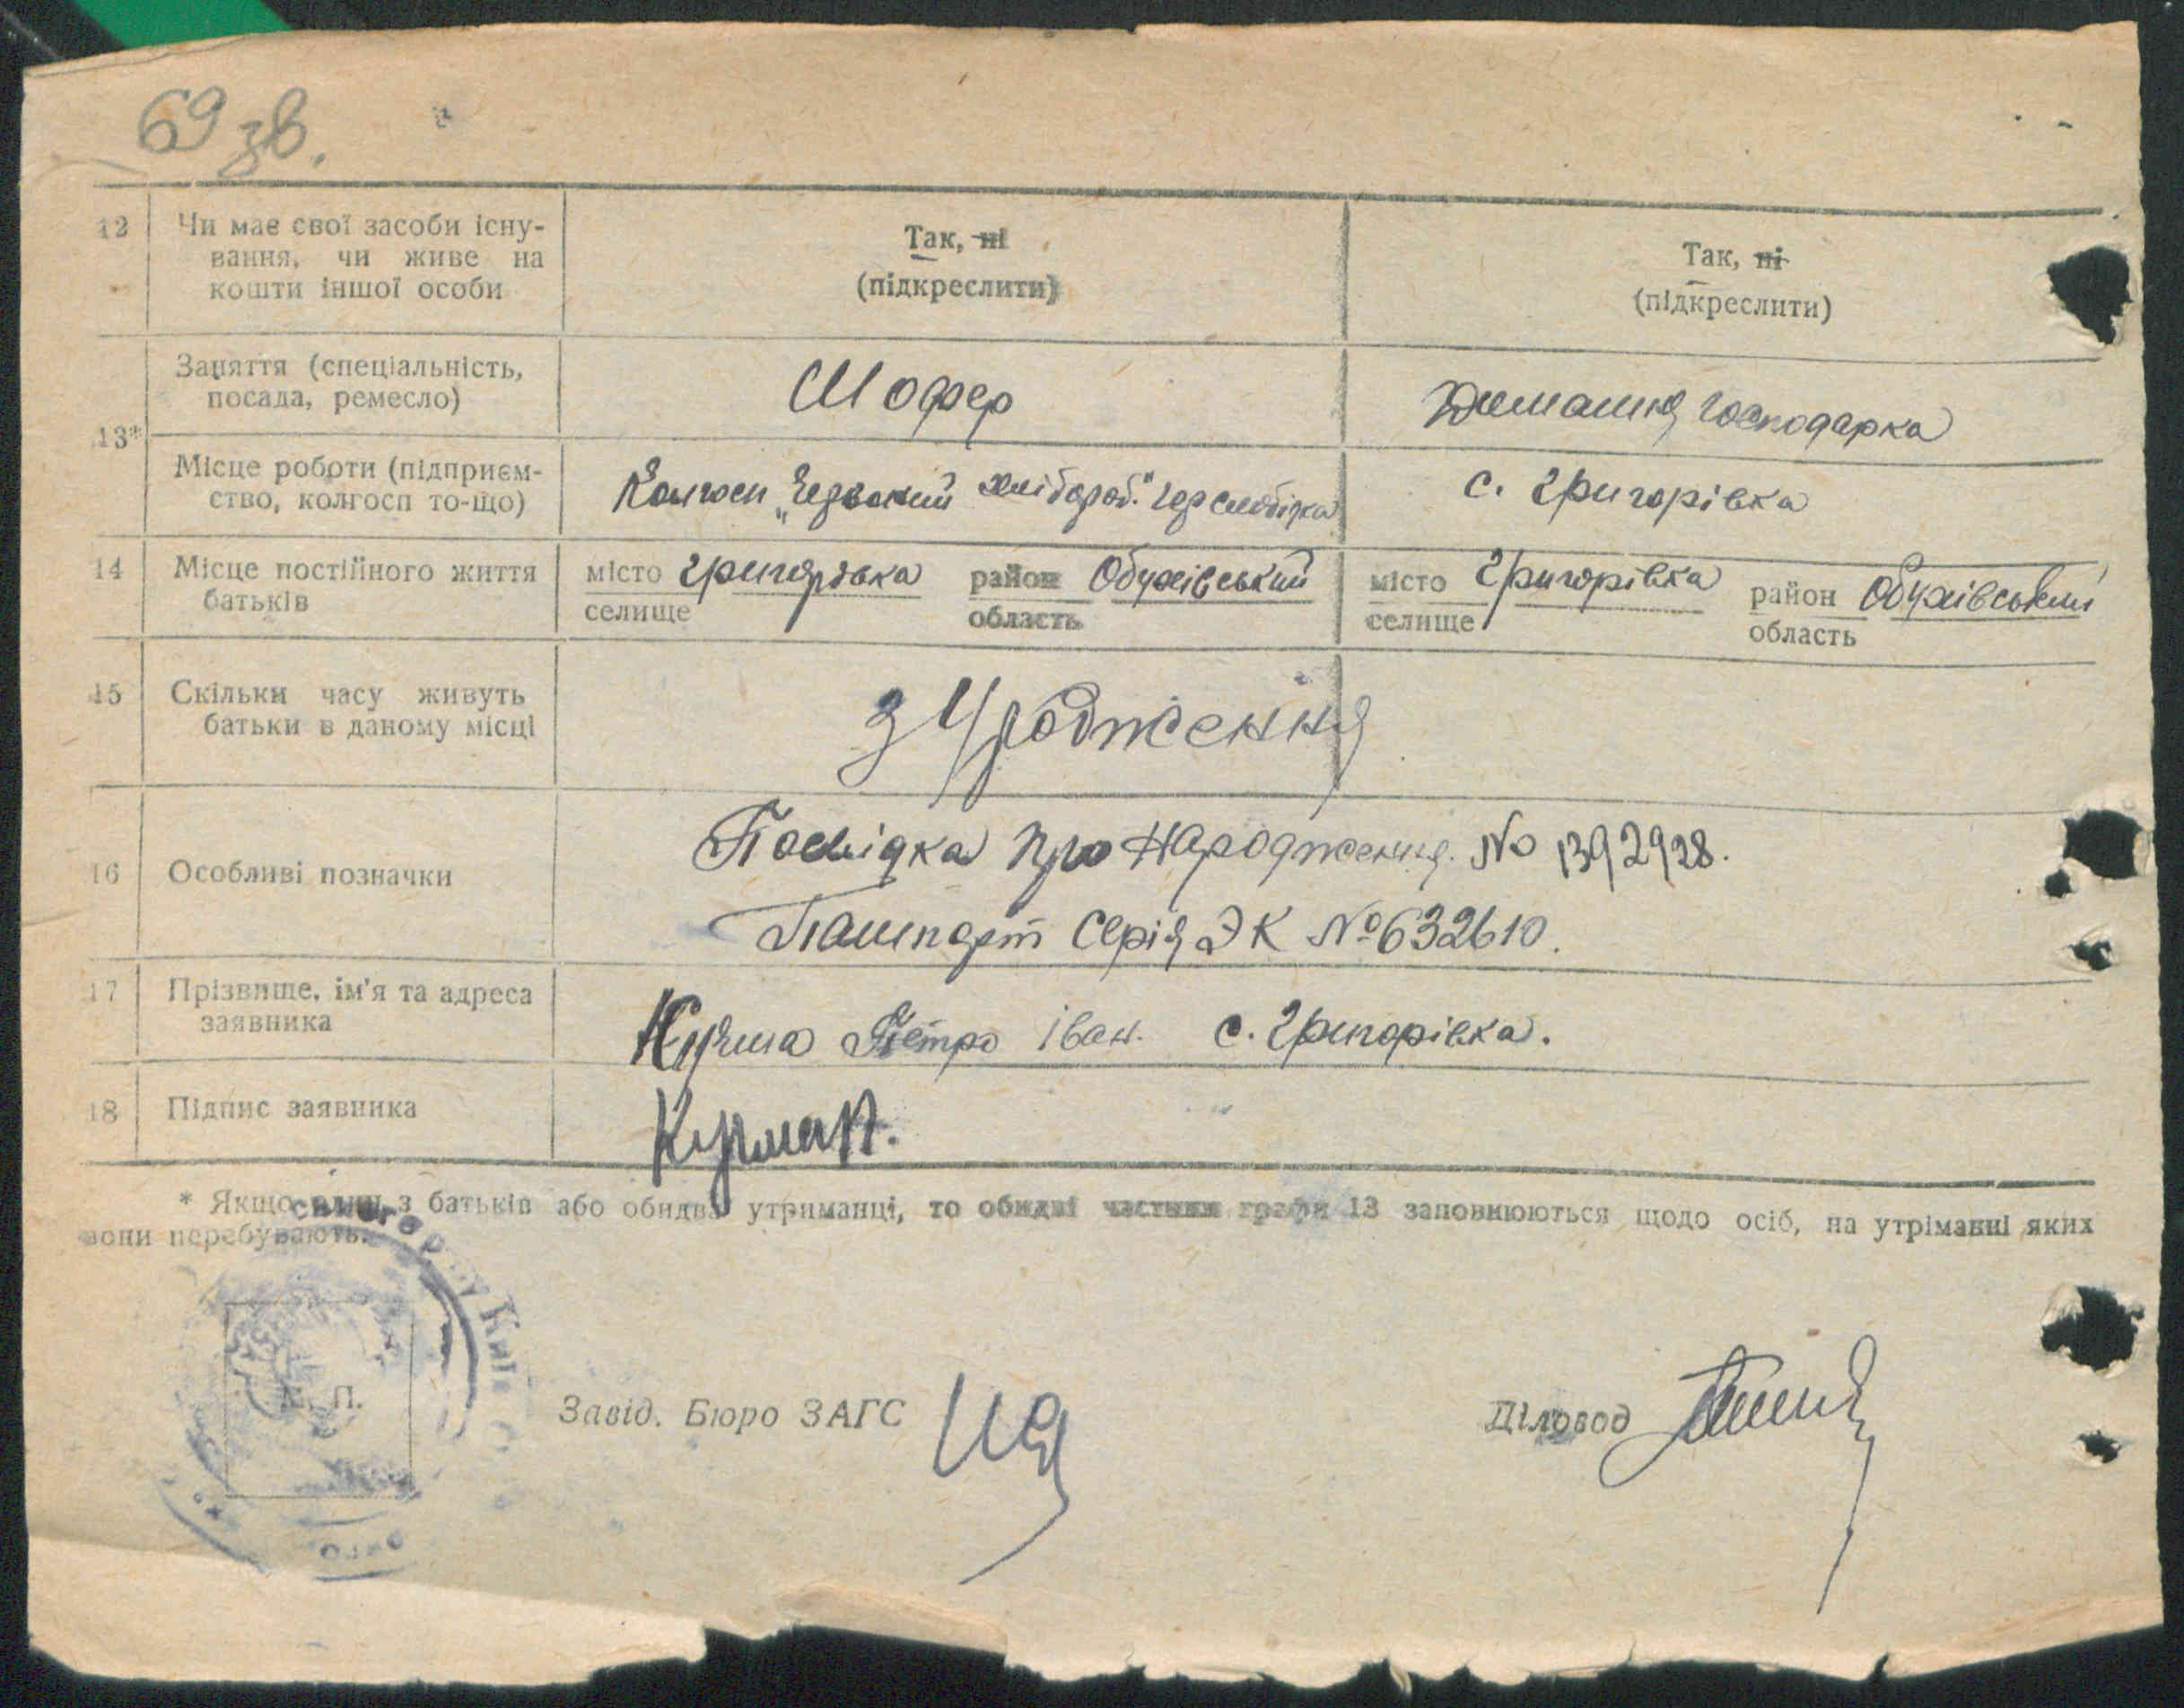 69 зв.
12 Чи має свої засоби існу-
вання, чи живе на
кошти іншої особи
Так, ні
(підкреслити)
Так, ні
(підкреслити)
13*
Заняття (спеціальність,
посада, ремесло)
Шофер
Домашня господарка
Місце роботи (підприєм-
ство, колгосп то-що)
Колгосп хлібороб"
с. Григорівка
14 Місце постійного життя
батьків
місто Григорівка район Обухівський
селище область
місто Григорівка район Обухівський
селище область
15 Скільки часу живуть
батьки в даному місці
з Уродження
16 Особливі позначки
Посвідка про Народження. № 1392928.
Пашпорт Серія ЭК № 632610.
17 Прізвище, ім'я та адреса
заявника
Петро Іван. с. Григорівка.
18 Підпис заявника
* Якщо один з батьків або обидва утриманці, то обидві частини графи 13 заповнюються щодо осіб, на утріманні яких
вони перебувають.
М. П.
Завід. Бюро ЗАГС
Діловод